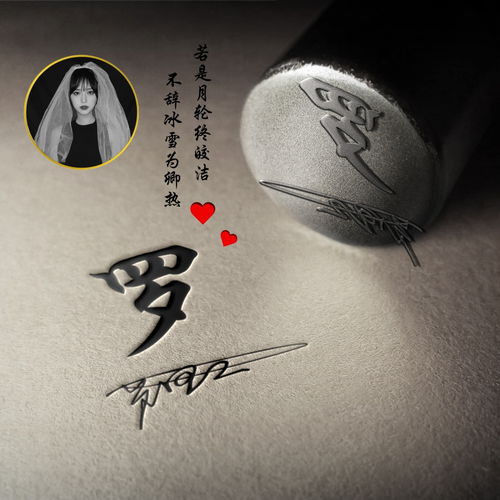 若是月轮终皎洁
不辞冰雪为卿热
罗
罗